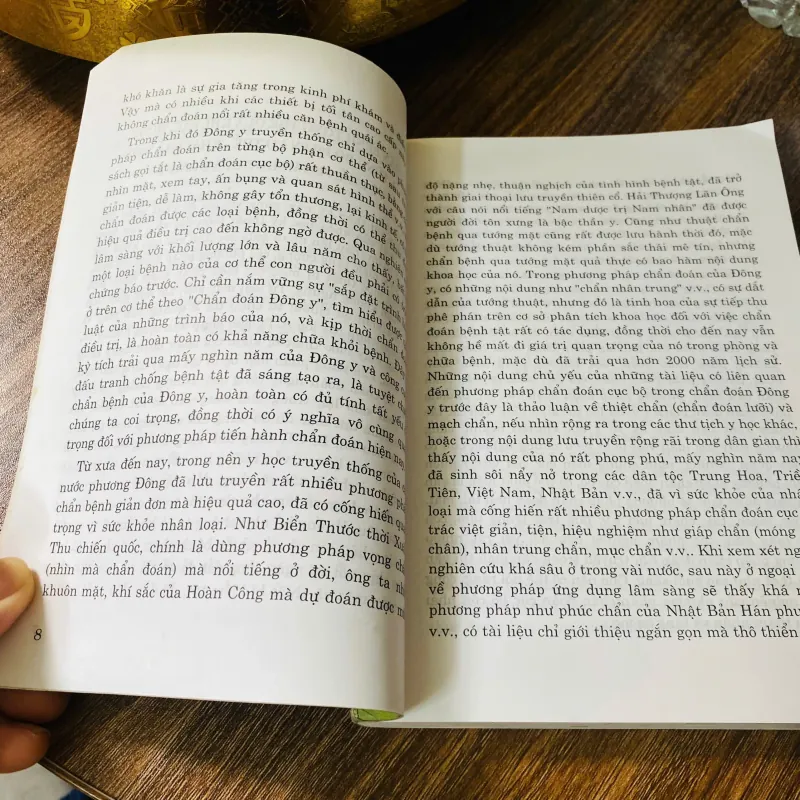 khó khăn là sự gia tăng trong kinh phí khám và
Vậy mà có nhiều khi các thiết bị tối tân cao cấp
không chẩn đoán nổi rất nhiều căn bệnh quái ác
Trong khi đó Đông y truyền thống chỉ dựa vào
pháp chẩn đoán trên từng bộ phận cơ thể (từ
sách gọi tắt là chẩn đoán cục bộ) rất thuần thục, bằng
nhìn mặt, xem tay, ấn bụng và quan sát hình thể
giản tiện, dễ làm, không gây tổn thương, lại kinh tế,
chẩn đoán được các loại bệnh, đồng thời có thể
hiệu quả điều trị cao đến không ngờ được. Qua nghiên
lâm sàng với khối lượng lớn và lâu năm cho thấy, bất
một loại bệnh nào của cơ thể con người đều phải có
chứng báo trước. Chỉ cần nắm vững sự "sắp đặt trình
ở trên cơ thể theo "Chẩn đoán Đông y", tìm hiểu được
luật của những trình báo của nó, và kịp thời chẩn
điều trị, là hoàn toàn có khả năng chữa khỏi bệnh.
kỳ tích trải qua mấy nghìn năm của Đông y và công
đấu tranh chống bệnh tật đã sáng tạo ra, là tuyệt
chẩn bệnh của Đông y, hoàn toàn có đủ tính tất yếu
chúng ta coi trọng, đồng thời có ý nghĩa vô cùng
trọng đối với phương pháp tiến hành chẩn đoán hiện nay.
Từ xưa đến nay, trong nền y học truyền thống của
nước phương Đông đã lưu truyền rất nhiều phương
chẩn bệnh giản đơn mà hiệu quả cao, đã có cống hiến
trọng vì sức khỏe nhân loại. Như Biển Thước thời
Thu chiến quốc, chính là dùng phương pháp vọng
(nhìn mà chẩn đoán) mà nổi tiếng ở đời, ông ta
khuôn mặt, khí sắc của Hoàn Công mà dự đoán được
8
độ nặng nhẹ, thuận nghịch của tình hình bệnh tật, đã trở
thành giai thoại lưu truyền thiên cổ. Hải Thượng Lãn Ông
với câu nói nổi tiếng "Nam dược trị Nam nhân" đã được
người đời tôn xưng là bậc thần y. Cũng như thuật chẩn
bệnh qua tướng mặt cũng rất được lưu hành thời đó, mặc
dù tướng thuật không kém phần sắc thái mê tín, nhưng
chẩn bệnh qua tướng mặt quả thực có bao hàm nội dung
khoa học của nó. Trong phương pháp chẩn đoán của Đông
y, có những nội dung như "chẩn nhân trung" v.v., có sự dắt
dẫn của tướng thuật, nhưng đó là tinh hoa của sự tiếp thu
phê phán trên cơ sở phân tích khoa học đối với việc chẩn
đoán bệnh tật rất có tác dụng, đồng thời cho đến nay vẫn
không hề mất đi giá trị quan trọng của nó trong phòng và
chữa bệnh, mặc dù đã trải qua hơn 2000 năm lịch sử.
Những nội dung chủ yếu của những tài liệu có liên quan
đến phương pháp chẩn đoán cục bộ trong chẩn đoán Đông
y trước đây là thảo luận về thiệt chẩn (chẩn đoán lưỡi) và
mạch chẩn, nếu nhìn rộng ra trong các thư tịch y học khác,
hoặc trong nội dung lưu truyền rộng rãi trong dân gian thì
thấy nội dung của nó rất phong phú, mấy nghìn năm nay
đã sinh sôi nẩy nở trong các dân tộc Trung Hoa, Triều
Tiên, Việt Nam, Nhật Bản v.v., đã vì sức khỏe của nhân
loại mà cống hiến rất nhiều phương pháp chẩn đoán cục
trác việt giản, tiện, hiệu nghiệm như giáp chẩn (móng
chân), nhân trung chẩn, mục chẩn v.v.. Khi xem xét
nghiên cứu khá sâu ở trong vài nước, sau này ở ngoại
về phương pháp ứng dụng lâm sàng sẽ thấy khá
phương pháp như phúc chẩn của Nhật Bản Hán
v.v., có tài liệu chỉ giới thiệu ngắn gọn mà thô thiển